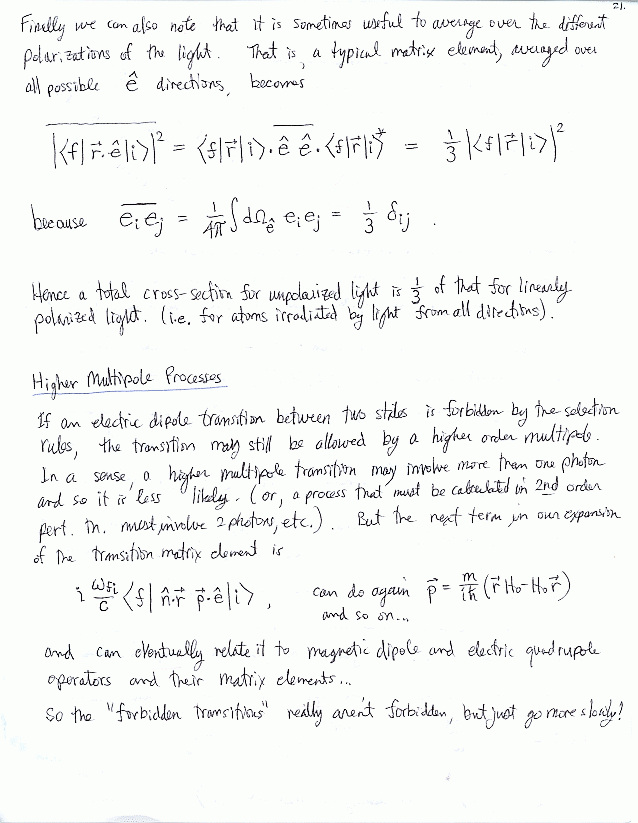 21.
Finally we can also note that it is sometimes useful to average over the different
polarizations of the light. That is, a typical matrix element, averaged over
all possible ê directions, becomes
\overline{|⟨f|r⃗·ê|i⟩|²} = ⟨f|r⃗|i⟩·\overline{ê ê}·⟨f|r⃗|i⟩* = 1/3 |⟨f|r⃗|i⟩|²
because \overline{e_i e_j} = 1/4π ∫dΩ_ê e_i e_j = 1/3 δ_ij .
Hence a total cross-section for unpolarized light is 1/3 of that for linearly
polarized light. (i.e. for atoms irradiated by light from all directions).
Higher Multipole Processes
If an electric dipole transition between two states is forbidden by the selection
rules, the transition may still be allowed by a higher order multipole.
In a sense, a higher multipole transition may involve more than one photon
and so it is less likely. (or, a process that must be calculated in 2nd order
pert. th. must involve 2 photons, etc.) . But the next term in our expansion
of the transition matrix element is
i ω_fi/c ⟨f| n̂·r⃗ p⃗·ê|i⟩ , can do again p⃗ = m/iħ (r⃗ H₀ - H₀ r⃗)
and so on...
and can eventually relate it to magnetic dipole and electric quadrupole
operators and their matrix elements...
So the "forbidden transitions" really aren't forbidden, but just go more slowly!